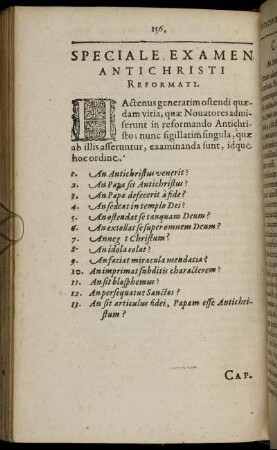 156.
SPECIALE EXAMEN
ANTICHRISTI
REFORMATI.
HActenus generatim ostendi quæ-
dam vitia, quæ Novatores admi-
serunt in reformando Antichri-
sto; nunc sigillatim singula, quæ
ab illis asseruntur, examinanda sunt, idque
hoc ordine.
1. An Antichristus venerit?
2. An Papa sit Antichristus?
3. An Papa defecerit à fide?
4. An sedeat in templo Dei?
5. An ostendat se tanquam Deum?
6. An extollat se super omnem Deum?
7. An neg t Christum?
8. An idola colat?
9. An faciat miracula mendacia?
10. An imprimat subditis characterem?
11. An sit blasphemus?
12. An persequatur Sanctos?
13. An sit articulus fidei, Papam esse Antichri-
stum?
CAP.